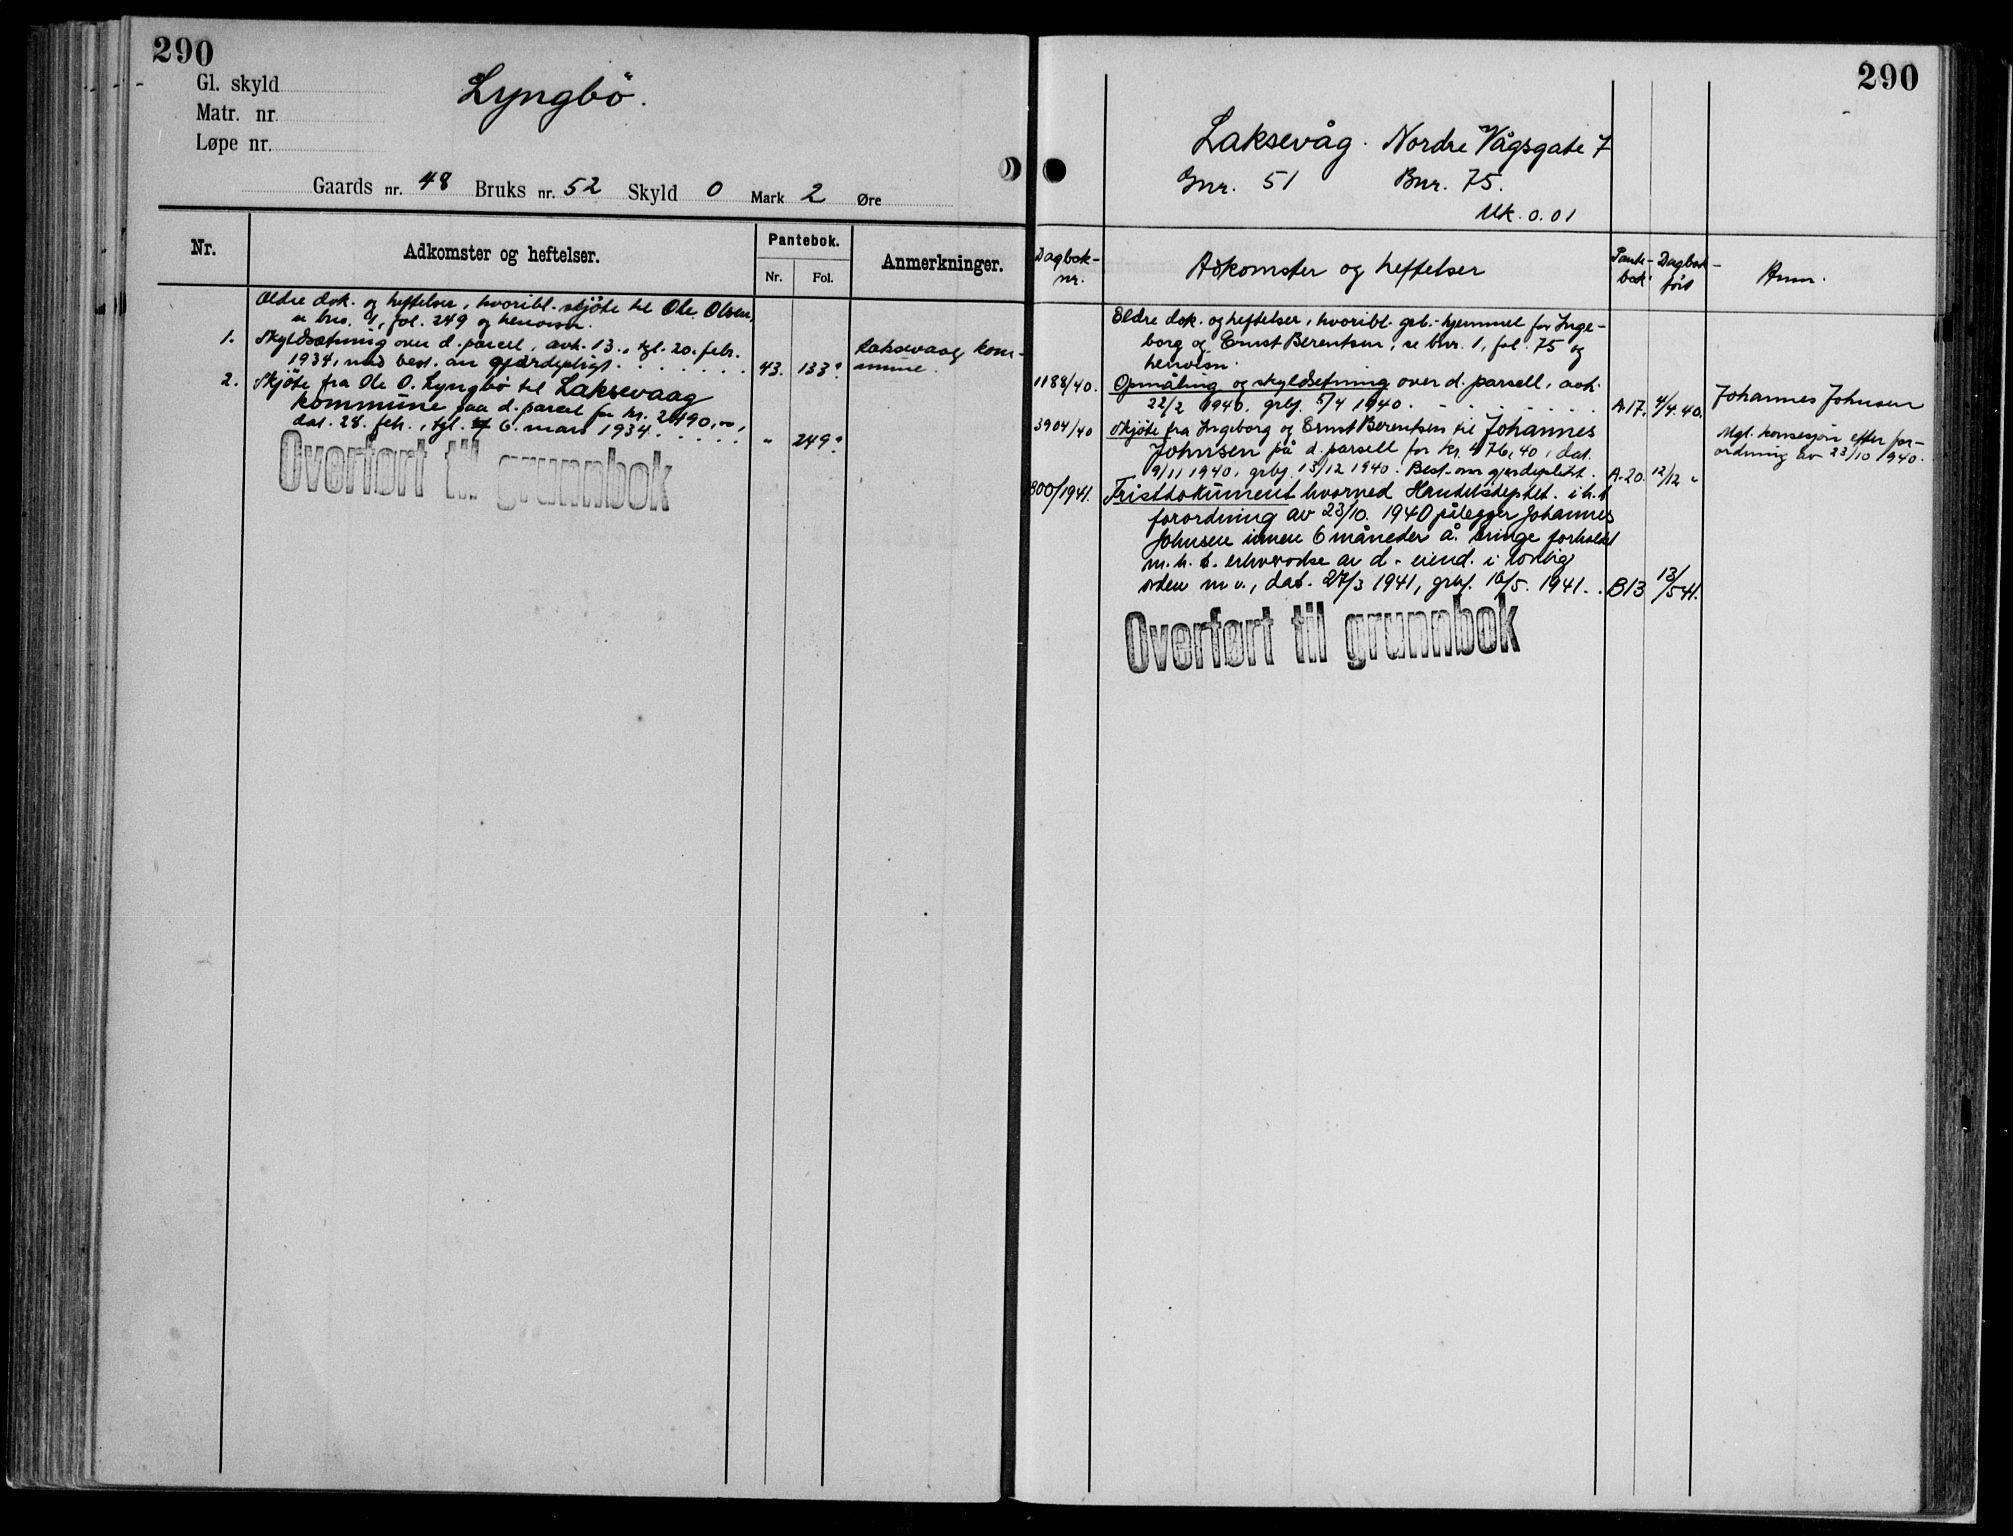 290
Gl. skyld
Matr. nr.
Løpe nr.
Lyngbö.
Gaards nr. 48 Bruks nr. 52 Skyld 0 Mark 2 Øre
Nr.
Adkomster og heftelser.
Pantebok.
Nr.
Fol.
Anmerkninger.
Ældre dok. og heftelser, hvoribl. skjöte til Ole Olsen,
se bno. 4, fol. 249 og henvisn.
1. Skyldsætning over d. parcel, avh. 13., tgl. 20. febr.
1934, med best. om gjærdepligt. . . . . . . 43. 133.
Laksevaag kom-
mune.
2. Skjöte fra Ole O. Lyngbö til Laksevaag
kommune paa d. parcel for kr. 2490,00,
dat. 28. feb., tgl. 6. mars 1934. . . . . . " 249.
Overført til grunnbok
290
Laksevåg. Nordre Vågsgate 7
Gnr. 51 Bnr. 75.
Mk. 0.01
Dagbok-
nr.
Adkomster og heftelser
Pante-
bok
Dagbok-
ført
Anm.
Eldre dok. og heftelser, hvoribl. grb.-hjemmel for Inge-
borg og Ernst Berentsen, se bnr. 1, fol. 75 og
henvisn.
1188/40. Opmåling og skyldsetning over d. parsell, avh.
22/2 1940, grbf. 5/4 1940. - - - - - - A-17. 4/4.40.
Johannes Johnsen
3904/40 Skjöte fra Ingeborg og Ernst Berentsen til Johannes
Johnsen på d. parsell for kr. 476,40, dat.
9/11 1940, grbf. 13/12 1940. Best. om gjerdeplikt. A-20. 12/12 "
Mgl. konsesjon efter for-
ordning av 23/10 1940.
1800/1941. Fristdokument hvorved Handelsdeptet. i h.t.
forordning av 23/10. 1940 pålegger Johannes
Johnsen innen 6 måneder å bringe forholdet
m.h.t. erhvervelse av d. eiend. i lovlig
orden m.v., dat. 27/3 1941, grbf. 16/5. 1941. . B13 13/5 41.
Overført til grunnbok